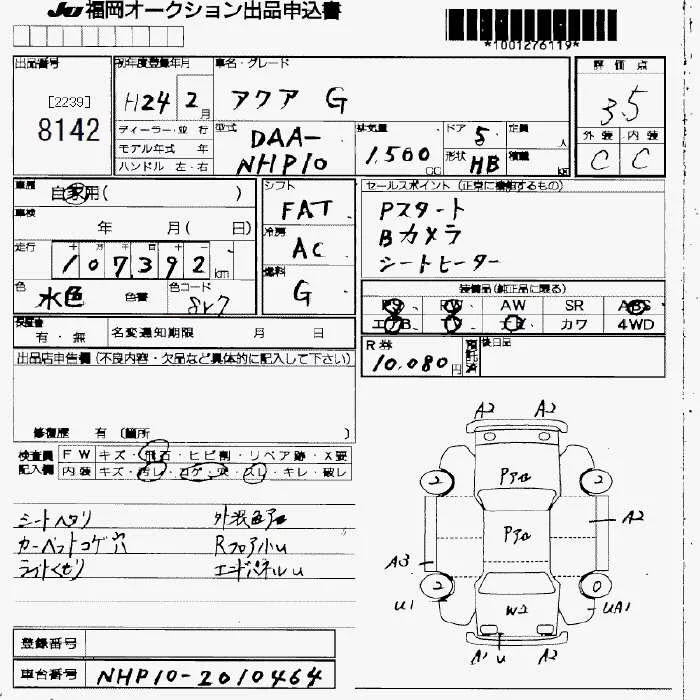 JU 福岡オークション出品申込書
*1001276119*
出品番号
[2239]
8142
初年度登録年月
H24 2月
ディーラー・並 行
モデル年式 年
ハンドル 左・右
車名・グレード
アクア G
型式
DAA-
NHP10
排気量
1,500 CC
ドア 5
形状 HB
定員 人
積載
評価点
3.5
外装 内装
C C
車歴
自家用( )
車検
年 月( 日)
走行
107,392 km
色
水色 色替
色コード
シフト
FAT
冷房
AC
燃料
G
セールスポイント (正常に機能するもの)
Pスタート
Bカメラ
シートヒーター
装備品(純正品に限る)
PS PW AW SR ABS
エアB カワ 4WD
R券
10,080円
預託済
後日品
保証書
有・無
名変通知期限 月 日
出品店申告欄 (不良内容・欠品など具体的に記入して下さい)
修復歴 有 (箇所 )
検査員
記入欄
FW キズ・飛石・ヒビ割・リペア跡・X要
内装 キズ・汚レ・コゲ・穴・スレ・キレ・破レ
シートヘタリ
カーペットコゲ穴
ライトくもり
外装色アセ
Rフロア小u
エンドパネルu
A2 A2
2 2
Pアセ
Pアセ
A2
A3
2 0
U1
W2
UA1
A1 u A2
登録番号
車台番号
NHP10-2010464